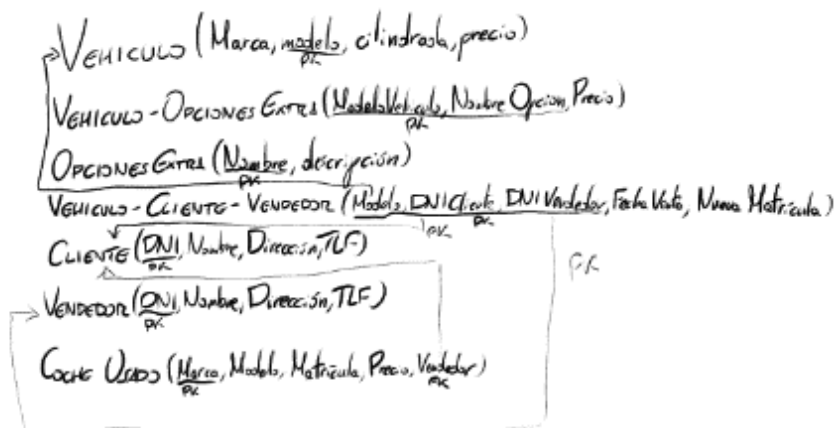 VEHICULO (Marca, modelo, cilindrada, precio)
PK
VEHICULO-OPCIONES EXTRA (ModeloVehiculo, Nombre Opcion, Precio)
PK
OPCIONES EXTRA (Nombre, descripción)
PK
VEHICULO-CLIENTE-VENDEDOR (Modelo, DNI Cliente, DNI Vendedor, Fecha Venta, Nueva Matrícula)
PK
CLIENTE (DNI, Nombre, Dirección, TLF)
PK
VENDEDOR (DNI, Nombre, Dirección, TLF)
PK
COCHE USADO (Marca, Modelo, Matrícula, Precio, Vendedor)
PK